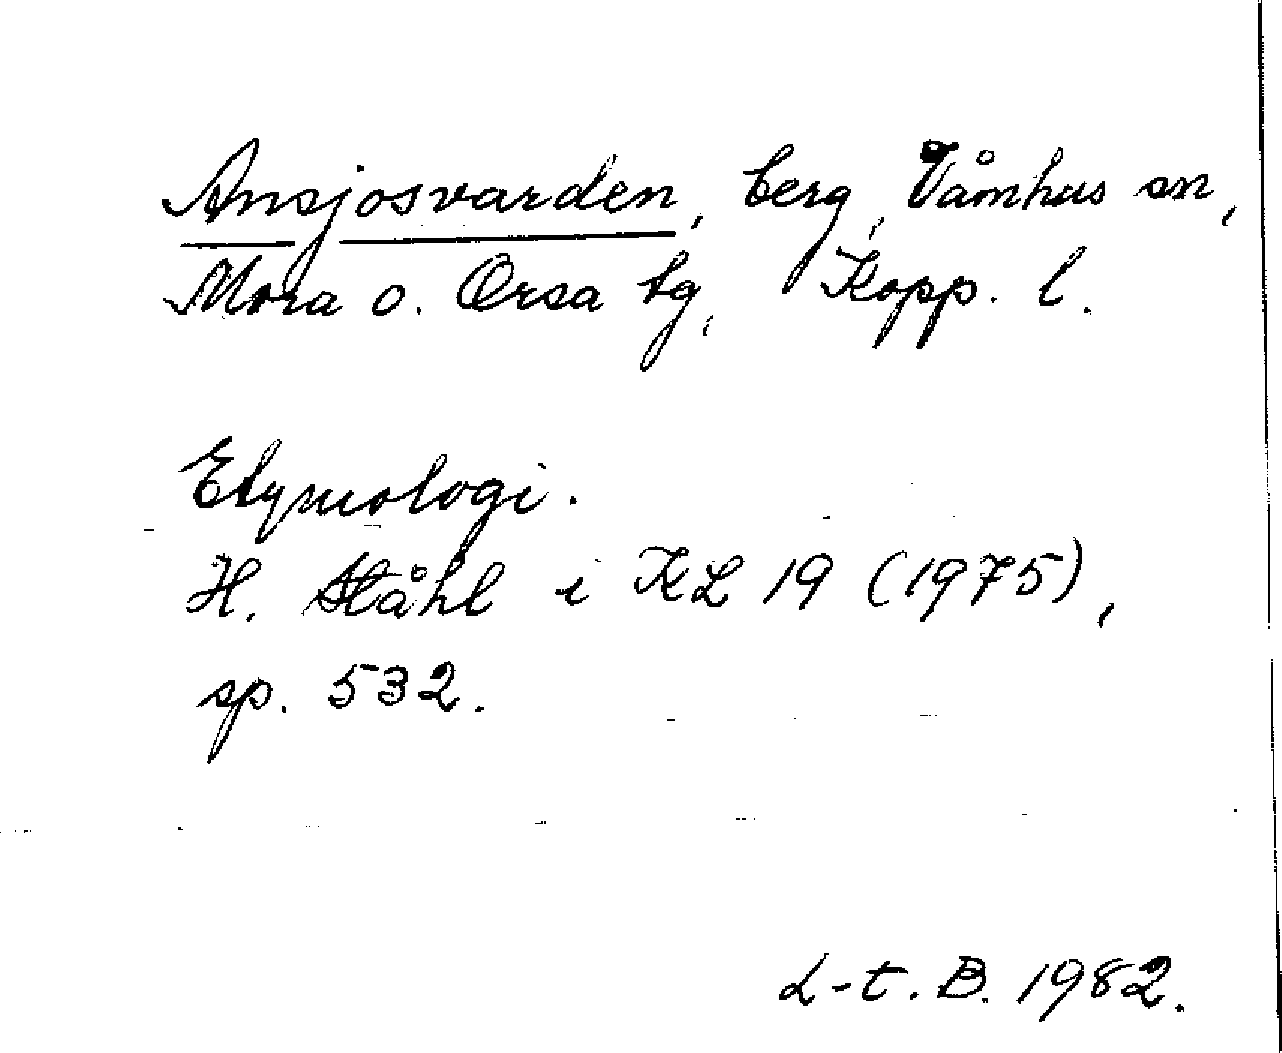 Ansjosvarden, berg, Våmhus sn,
Mora o. Orsa tg, Kopp. l.
Etymologi.
H. Ståhl i KL 19 (1975),
sp. 532.
L-t. B. 1982.